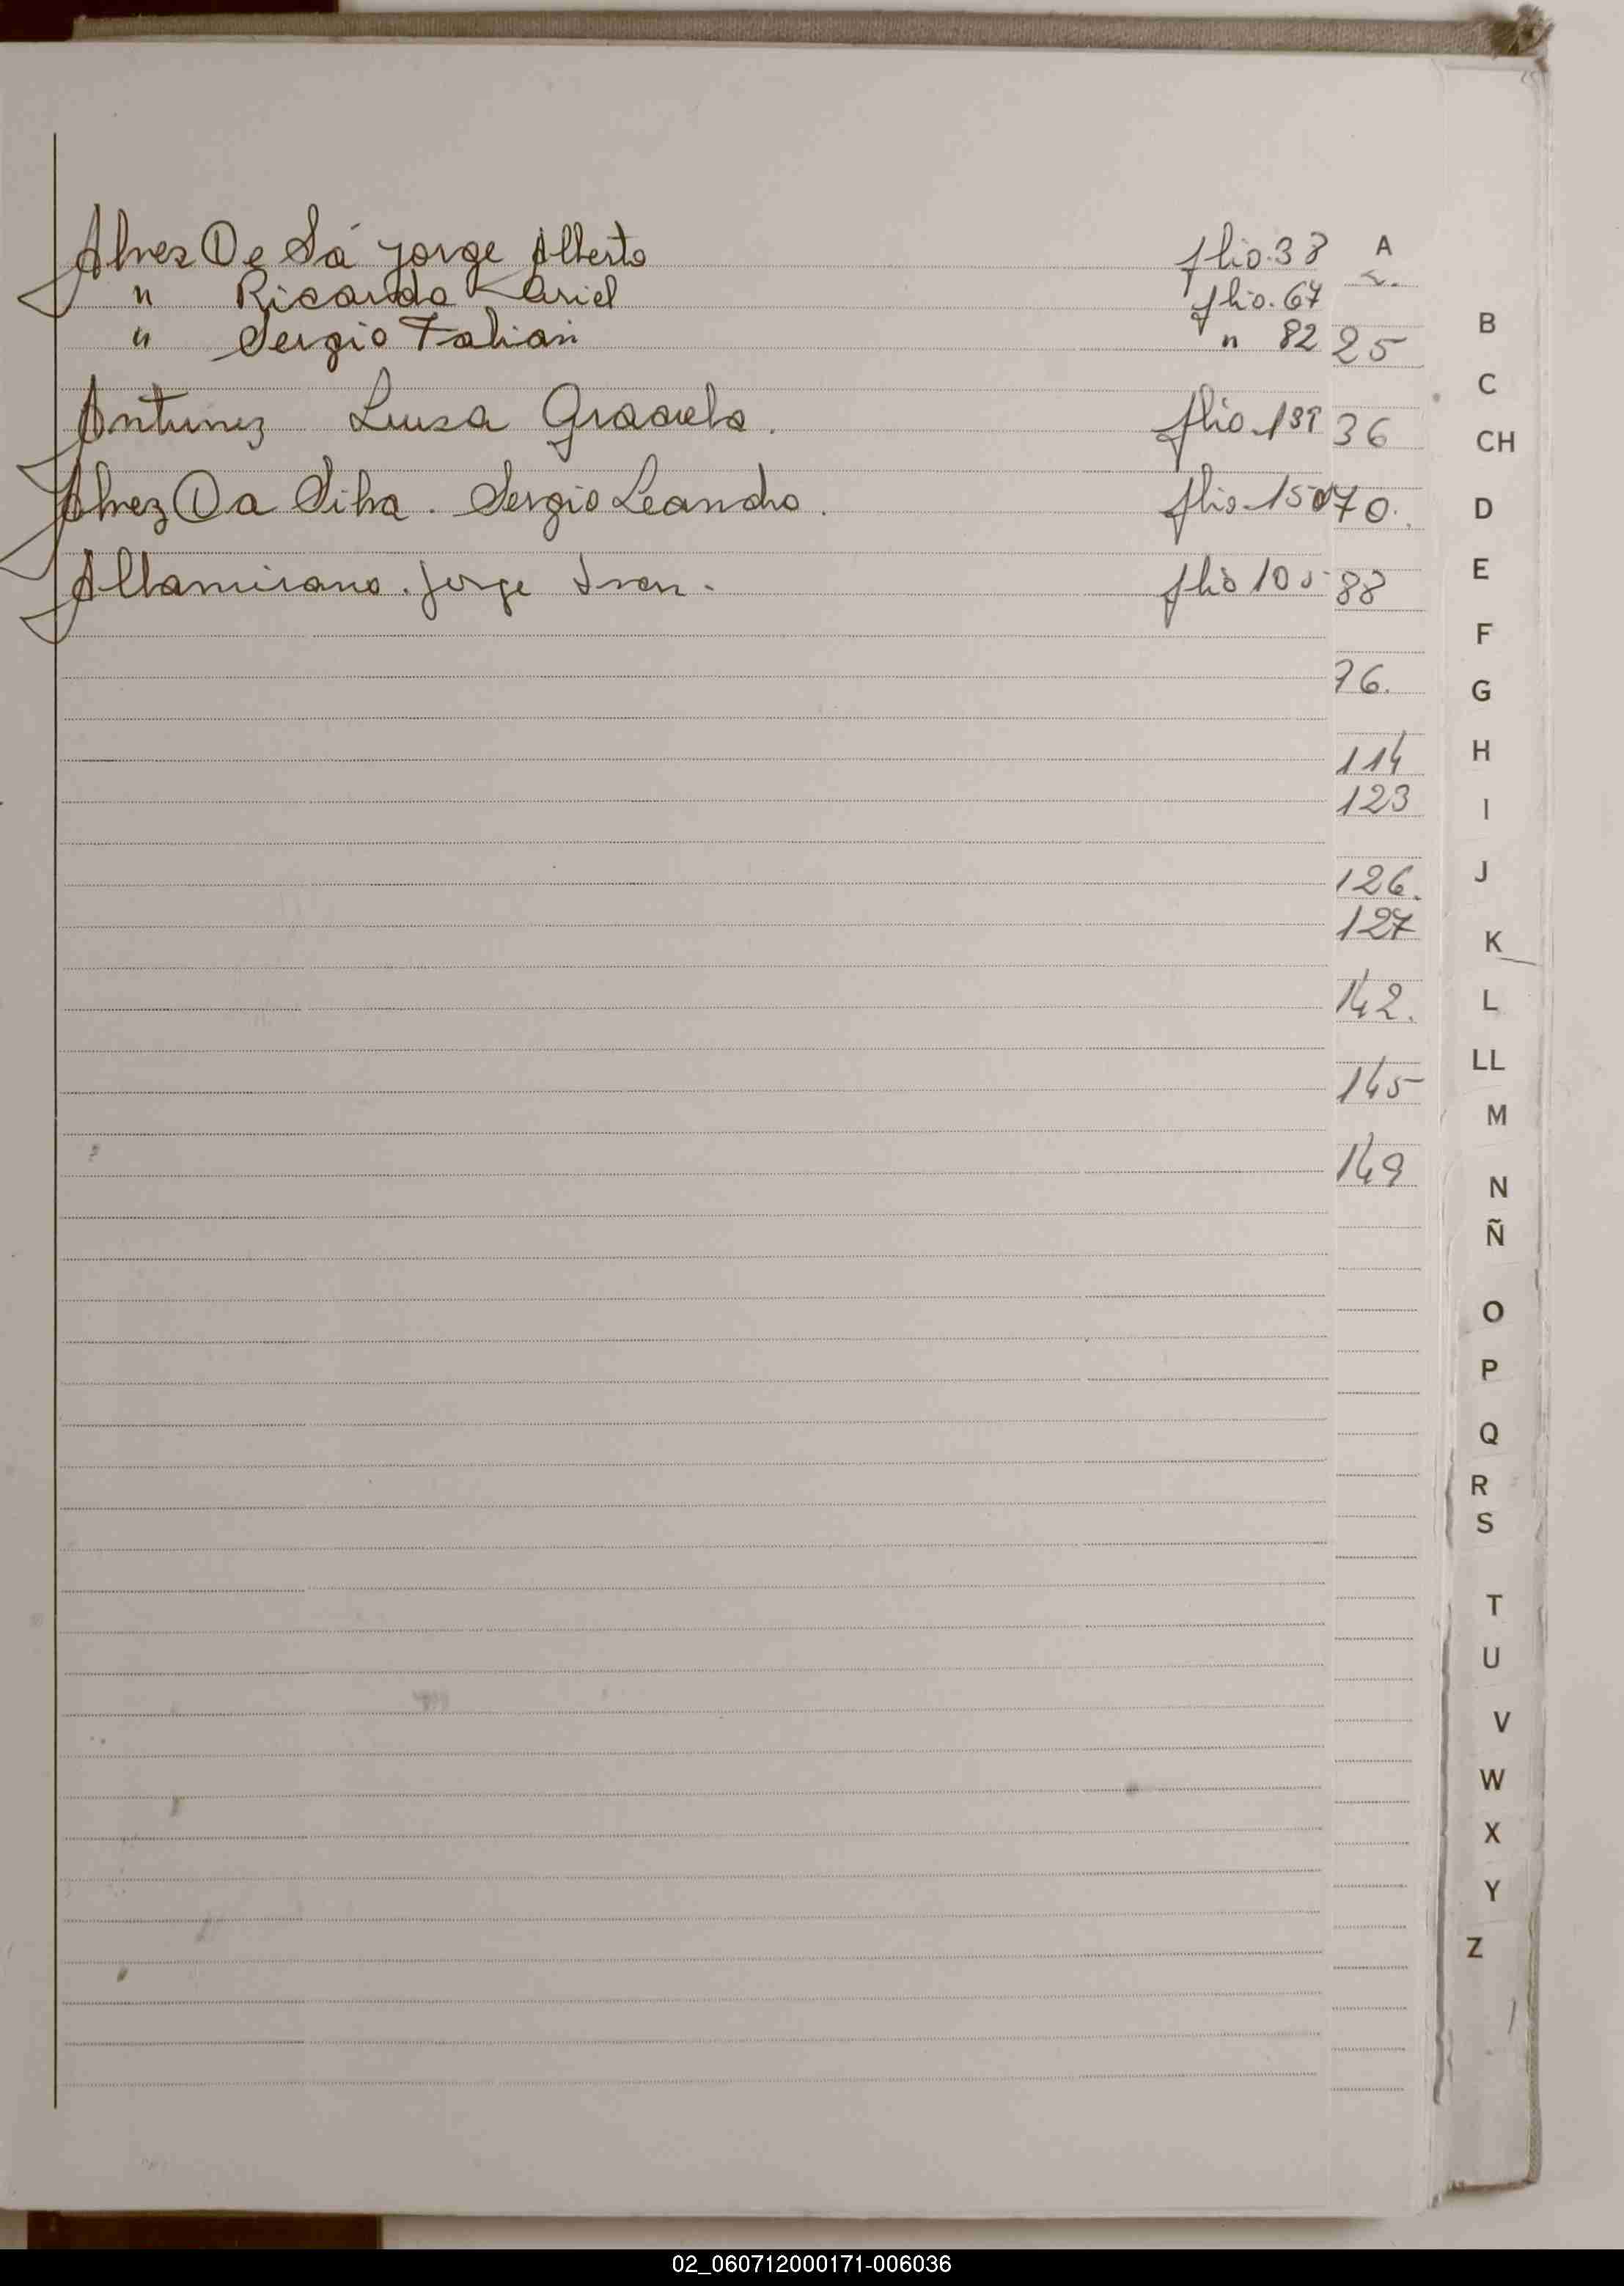 Alvez De Sá Jorge Alberto flio. 38 A
" Ricardo Ariel flio. 67
" Sergio Fabian " 82 25 B
C
Antunez Luisa Graciela. flio. 139 36 CH
Alvez Da Silva. Sergio Leandro. flio. 150 70. D
Altamirano. Jorge Ivan. flio 105 88 E
F
96. G
114 H
123 I
126. J
127 K
142. L
LL
145 M
149 N
Ñ
O
P
Q
R
S
T
U
V
W
X
Y
Z
02_060712000171-006036